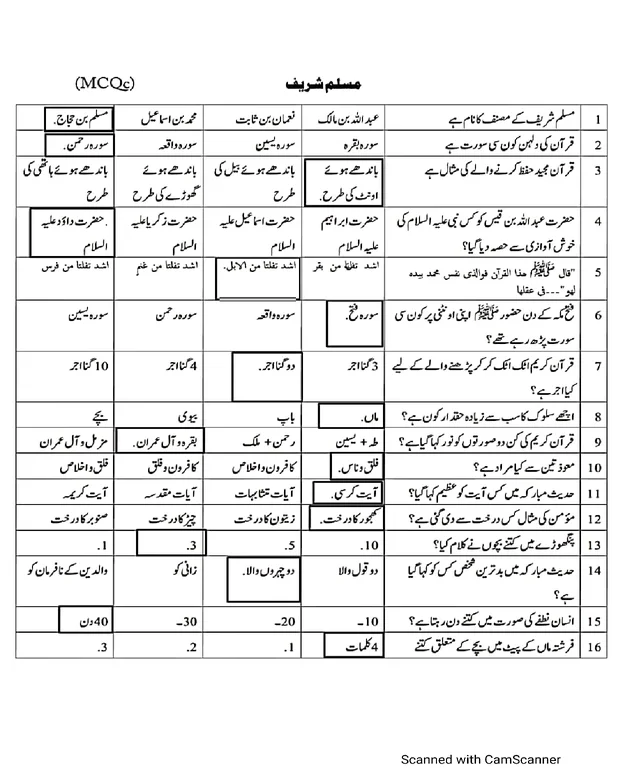 مسلم شریف (MCQc)
1 مسلم شریف کے مصنف کا نام ہے عبداللہ بن مالک نعمان بن ثابت محمد بن اسماعیل مسلم بن حجاج.
2 قرآن کی دلہن کون سی سورت ہے سورہ بقرہ سورہ یسین سورہ واقعہ سورہ رحمن.
3 قرآن مجید حفظ کرنے والے کی مثال ہے باندھے ہوئے باندھے ہوئے بیل کی باندھے ہوئے باندھے ہوئے ہاتھی کی
اونٹ کی طرح. طرح گھوڑے کی طرح طرح
4 حضرت عبداللہ بن قیس کو کس نبی علیہ السلام کی حضرت ابراہیم حضرت اسماعیل علیہ حضرت زکریا علیہ .حضرت داؤد علیہ
خوش آوازی سے حصہ دیا گیا؟ علیہ السلام السلام السلام السلام
5 "قال ﷺ تعاهدوا هذا القرآن فوالذی نفس محمد بیده اشد تفلتا من بقر اشد تفلتا من الابل. اشد تفلتا من غنم اشد تفلتا من فرس
لهو"---فی عقلها
6 فتح مکہ کے دن حضور ﷺ اپنی اونٹنی پر کون سی سورہ فتح. سورہ واقعہ سورہ رحمن سورہ یسین
سورت پڑھ رہے تھے؟
7 قرآن کریم اٹک اٹک کر پڑھنے والے کے لیے 3گنا اجر دو گنا اجر. 4گنا اجر 10گنا اجر
کیا اجر ہے؟
8 اچھے سلوک کا سب سے زیادہ حقدار کون ہے؟ ماں. باپ بیوی بچے
9 قرآن کریم کی کن دو صورتوں کو نور کہا گیا ہے؟ طہ + یسین رحمن + ملک بقرہ و آل عمران. مزمل و آل عمران
10 معوذتین سے کیا مراد ہے؟ فلق و ناس. کافرون و اخلاص کافرون و فلق فلق و اخلاص
11 حدیث مبارکہ میں کس آیت کو عظیم کہا گیا؟ آیت کرسی. آیات متشابہات آیات مقدسہ آیت کریمہ
12 مؤمن کی مثال کس درخت سے دی گئی ہے؟ کھجور کا درخت. زیتون کا درخت چیڑ کا درخت صنوبر کا درخت
13 پنگھوڑے میں کتنے بچوں نے کلام کیا؟ 10. 5. 3. 1.
14 حدیث مبارکہ میں بدترین شخص کس کو کہا گیا دو قول والا دو چہروں والا. زانی کو والدین کے نافرمان کو
ہے؟
15 انسان نطفے کی صورت میں کتنے دن رہتا ہے؟ 10- 20- 30- 40دن
16 فرشتہ ماں کے پیٹ میں بچے کے متعلق کتنے 4کلمات 1. 2. 3.
Scanned with CamScanner